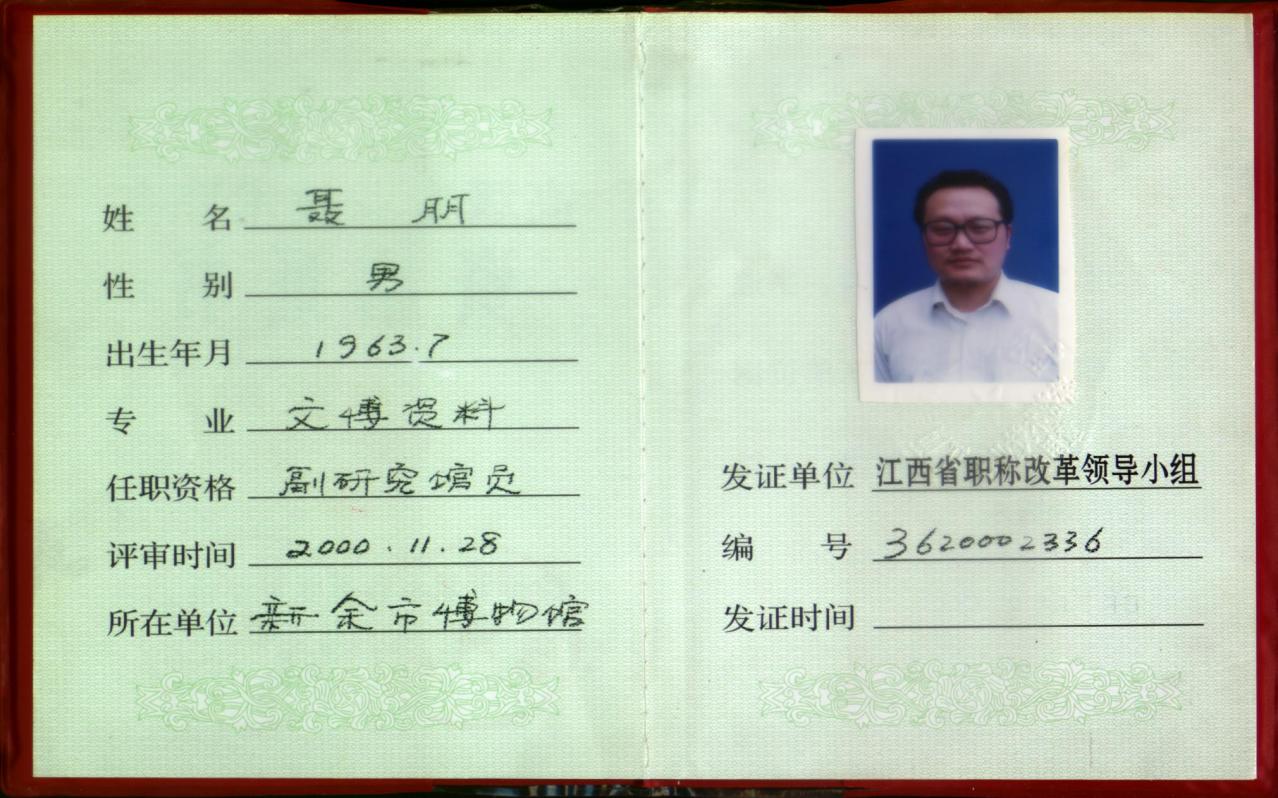 姓名 聂朋
性别 男
出生年月 1963.7
专业 文博资料
任职资格 副研究馆员
评审时间 2000.11.28
所在单位 新余市博物馆
发证单位 江西省职称改革领导小组
编号 3620002336
发证时间